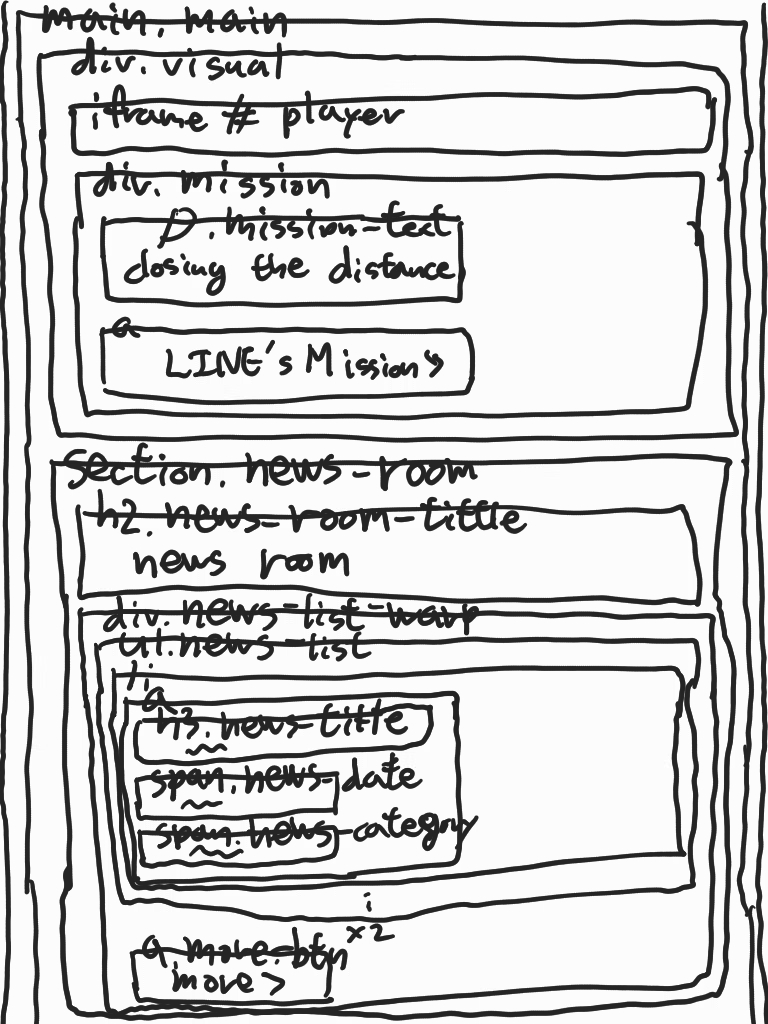 main. main
div. visual
iframe # player
div. mission
p. mission-text
closing the distance
a
LINE's Mission >
section. news-room
h2. news-room-tittle
news room
div. news-list-warp
ul. news-list
li
a
h3. news-title
span. news-date
span. news-category
x2
a. more-btn
more >